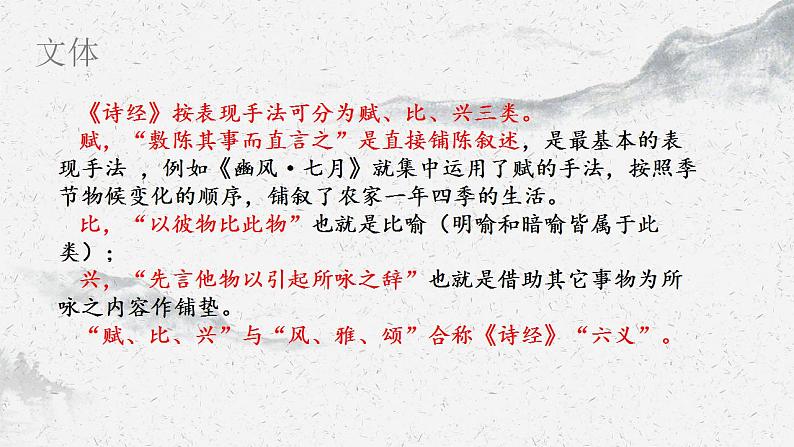 文体
《诗经》按表现手法可分为赋、比、兴三类。
赋，“敷陈其事而直言之”是直接铺陈叙述，是最基本的表
现手法 ，例如《豳风·七月》就集中运用了赋的手法，按照季
节物候变化的顺序，铺叙了农家一年四季的生活。
比，“以彼物比此物”也就是比喻（明喻和暗喻皆属于此
类）；
兴，“先言他物以引起所咏之辞”也就是借助其它事物为所
咏之内容作铺垫。
“赋、比、兴”与“风、雅、颂”合称《诗经》“六义”。